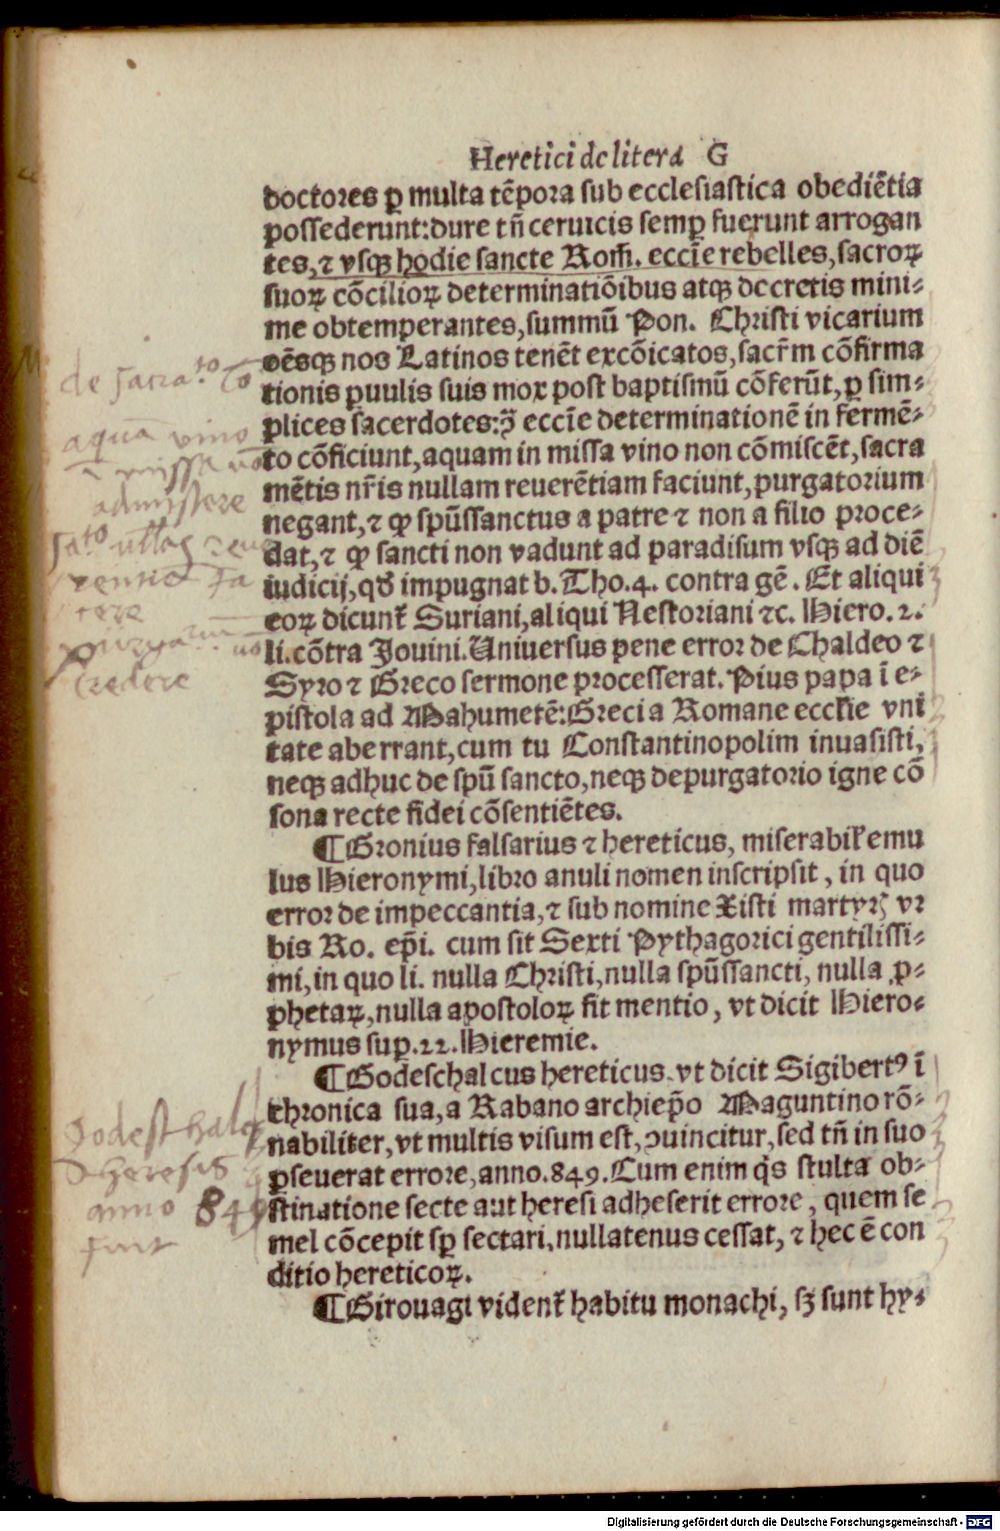 Heretici de litera G
doctores ꝑ multa tẽpora sub ecclesiastica obediẽtia
possederunt:dure tñ ceruicis semꝑ fuerunt arrogan
tes,⁊ vsqꝫ hodie sancte Rom̃. eccl̃e rebelles,sacroꝝ
suoꝝ cõcilioꝝ determinatiõibus atqꝫ decretis mini⸗
me obtemperantes,summũ Pon. Christi vicarium
oẽsqꝫ nos Latinos tenẽt excõicatos,sacr̃m cõfirma
tionis puulis suis mox post baptismũ cõferũt,ꝑ sim⸗
plices sacerdotes:ↄ̃ eccl̃e determinationẽ in fermẽ⸗
to cõficiunt,aquam in missa vino non cõmiscẽt,sacra
mẽtis nr̃is nullam reuerẽtiam faciunt,purgatorium
negant,⁊ ꝙ spũssanctus a patre ⁊ non a filio proce⸗
dat,⁊ ꝙ sancti non vadunt ad paradisum vsqꝫ ad diẽ
iudicij,qd̃ impugnat b. Tho.4. contra gẽ. Et aliqui
eoꝝ dicunt̃ Suriani,aliqui Nestoriani ⁊c. Hiero.2.
li.cõtra Jouini.Uniuersus pene error de Chaldeo ⁊
Syro ⁊ Greco sermone processerat. Pius papa ĩ e⸗
pistola ad Mahumetẽ:Greci a Romane eccl̃ie vni
tate aberrant,cum tu Constantinopolim inuasisti,
neqꝫ adhuc de spũ sancto,neqꝫ de purgatorio igne cõ
sona recte fidei cõsentiẽtes.
¶Gronius falsarius ⁊ hereticus, miserabil̃ emu
lus Hieronymi,libro anuli nomen inscripsit, in quo
error de impeccantia,⁊ sub nomine Xisti martyrꝭ vr
bis Ro. ep̃i. cum sit Sexti Pythagorici gentilissi⸗
mi,in quo li. nulla Christi,nulla spũssancti, nulla ꝓ⸗
phetaꝝ,nulla apostoloꝝ fit mentio, vt dicit Hiero⸗
nymus suꝑ.22.Hieremie.
¶Godeschalcus hereticus, vt dicit Sigibertꝰ ĩ
chronica sua,a Rabano archiep̃o Maguntino rõ⸗
nabiliter,vt multis visum est,ↄuincitur,sed tñ in suo
ꝑseuerat errore,anno.849.Cum enim q̃s stulta ob⸗
stinatione secte aut heresi adheserit errore, quem se
mel cõcepit sꝑ sectari,nullatenus cessat, ⁊ hec ẽ con
ditio hereticoꝝ.
¶Girouagi vident̃ habitu monachi, sꝫ sunt hy⸗
de sacra.to
aquã vino
ĩ missa nõ
admistere
credere
Godeschalc
heresis
anno 849
fuit
Digitalisierung gefördert durch die Deutsche Forschungsgemeinschaft - DFG